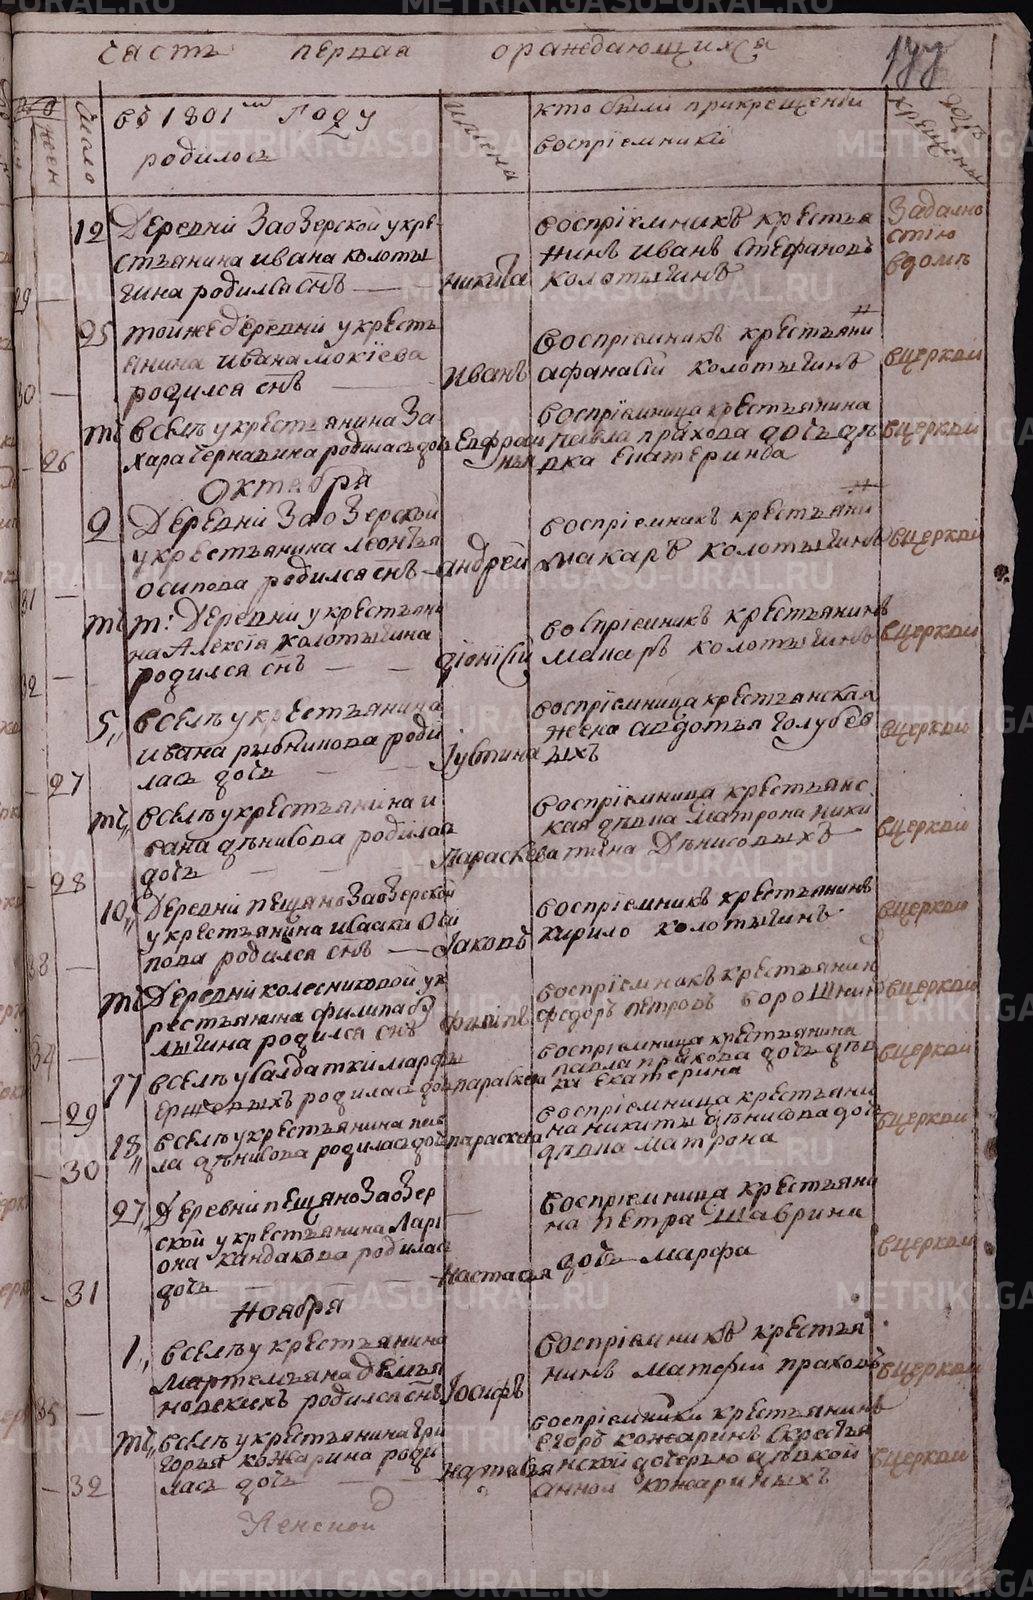 часть первая о раждающихся 177
въ 1801мъ Году
родилось
имена
кто были при крещенiи
воспрiемники
гдѣ
крещены
жен
число
12 Деревни Заозерской у кре-
стьянина Ивана Колоты
гина родился снъ — Никита
воспрiемникъ крестья
нинъ Иванъ Стефановъ
Колотыгинъ
За дално
стiю
в домѣ
29 —
25 тойже деревни у кресть
янина Ивана Мокiева
родился снъ — Иванъ
воспрiемникъ крестьяни
нъ
афанасiй Колотыгинъ
в церкви
30 —
тогожъ
в селѣ у крестьянина За
хара Чернавина родилась дочь Евфроси
нья
воспрiемница крестьянина
павла прахова дочь дѣ
вка Екатерина
в церкви
- 26
Октября
2 Деревни Заозерской
у крестьянина Леонтья
осипова родился снъ — андрей
воспрiемникъ крестьяни
нъ
макаръ Колотыгинъ
в церкви
31 —
т: Деревни у крестьяни
на Алексiя Колотыгина
родился снъ — — дiонисiй
воспрiемникъ крестьянинъ
макаръ Колотыгинъ
в церкви
32 —
5,, в селѣ у крестьянина
ивана рыбникова роди
лась дочь — — Iустина
воспрiемница крестьянская
жена авдотья Голубев
ыхъ
в церкви
- 27
в селѣ у крестьянина и
вана дѣнисова родилась
дочь — — Параскева
воспрiемница крестьянс
кая дѣвка Матрона Ники
тина Дѣнисовыхъ
в церкви
- 28
10,, Деревни пещано Заозерской
у крестьянина Iвана Оси
пова родился снъ — Iаковъ
воспрiемникъ крестьянинъ
кирило Колотыгинъ
в церкви
33 —
Деревни колесниковой у к
рестьянина филипа бу
лыгина родился снъ филипъ
воспрiемникъ крестьянин
федоръ петровъ
в церкви
34 —
17 в селѣ у салдатки марфы
Ершевыхъ родилась дочь параскева
воспрiемница крестьянина
павла прахова дочь дѣв
ка Екатерина
в церкви
- 29
18,, в селѣ у крестьянина пав
ла дѣнисова родилась дочь параскева
воспрiемница крестьяни
на никиты дѣнисова дочь
дѣвка матрона
в церкви
- 30
27,, Деревни пещано Заозер
ской у крестьянина Ларi
она Кандакова родилась
дочь — — Настасья
воспрiемница крестьяни
на петра шаврина
дочь марфа
в церкви
- 31
Ноября
1,, в селѣ у крестьянина
Мартемьяна Демья
новскихъ родился снъ Iосифъ
воспрiемникъ крестья
нинъ матфiй праховъ
в церкви
35 —
в селѣ у крестьянина гри
горья кожарина роди
лась дочь — наталья
воспрiемники крестьянинъ
Егоръ кожаринъ с крестья
нской дочерью дѣвкой
анной кожариныхъ
в церкви
- 32